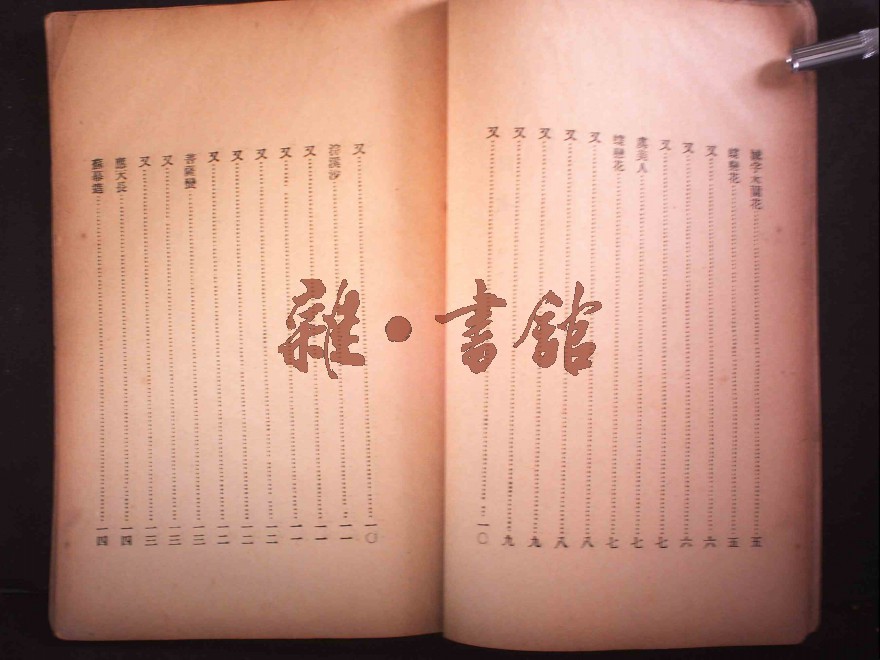 減字木蘭花……五
蝶戀花……五
又……六
又……六
又……七
虞美人……七
蝶戀花……七
又……八
又……八
又……九
又……九
又……一〇
又……一〇
浣溪沙……一一
又……一一
又……一一
又……一二
又……一二
又……一二
菩薩蠻……一三
又……一三
又……一三
應天長……一四
蘇幕遮……一四
雜·書館